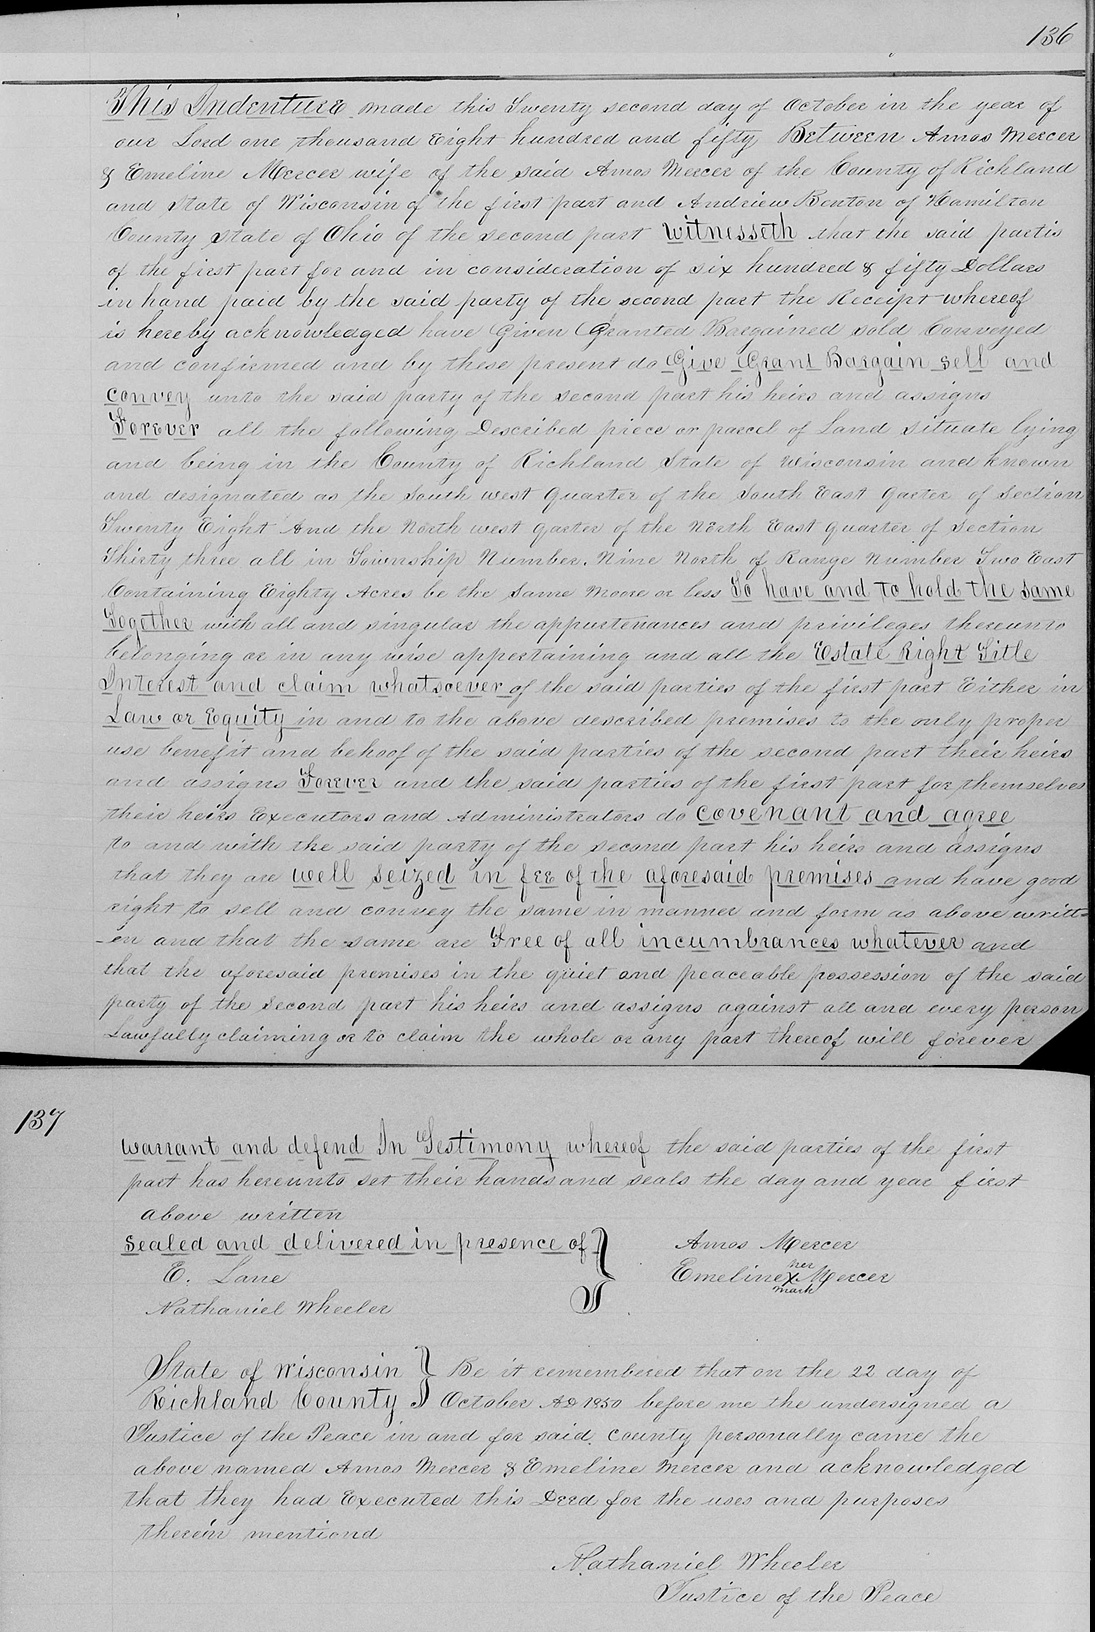 136
This Indenture made this Twenty second day of October in the year of
our Lord one thousand Eight hundred and fifty Between Amos Mercer
& Emeline Mercer wife of the said Amos Mercer of the County of Richland
and State of Wisconsin of the first part and Andriew Benton of Hamilton
County State of Ohio of the second part Witnesseth that the said partis
of the first part for and in consideration of six hundred & fifty Dollars
in hand paid by the said party of the second part the Receipt whereof
is hereby acknowledged have Given Granted Bargained sold Conveyed
and confirmed and by these present do Give Grant Bargain sell and
convey unto the said party of the second part his heirs and assigns
Forever all the following Described piece or parcel of Land situate lying
and being in the County of Richland State of Wisconsin and known
and designated as the South west Quarter of the South East Qarter of Section
Twenty Eight And the North west Qarter of the North East quarter of Section
Thirty three all in Township Number Nine North of Range Number Two East
Containing Eighty Acres be the Same Moore or less To have and to hold the same
Together with all and singular the appurtenances and privileges thereunto
belonging or in any wise appertaining and all the Estate Right Title
Interest and claim whatsoever of the said parties of the first part Either in
Law or Equity in and to the above described premises to the only proper
use benefit and behoof of the said parties of the second part their heirs
and assigns Forever and the said parties of the first part for themselves
their heirs Executors and Administrators do covenant and agree
to and with the said party of the second part his heirs and assigns
that they are well seized in fee of the aforesaid premises and have good
right to sell and convey the same in manner and form as above writt-
-en and that the same are Free of all incumbrances whatever and
that the aforesaid premises in the quiet and peaceable possession of the said
party of the Second part his heirs and assigns against all and every person
Lawfully claiming or to claim the whole or any part thereof will forever
137
warrant and defend In Testimony whereof the said parties of the first
part has hereunto set their hands and seals the day and year first
above written
Sealed and delivered in presence of
Amos Mercer
E. Lane
Emeline her X mark Mercer
Nathaniel Wheeler
State of Wisconsin } Be it remembered that on the 22 day of
Richland County } October AD 1850 before me the undersigned a
Justice of the Peace in and for said County personally came the
above named Amos Mercer & Emeline Mercer and acknowledged
that they had Executed this Deed for the uses and purposes
therein mentiond
Nathaniel Wheeler
Justice of the Peace